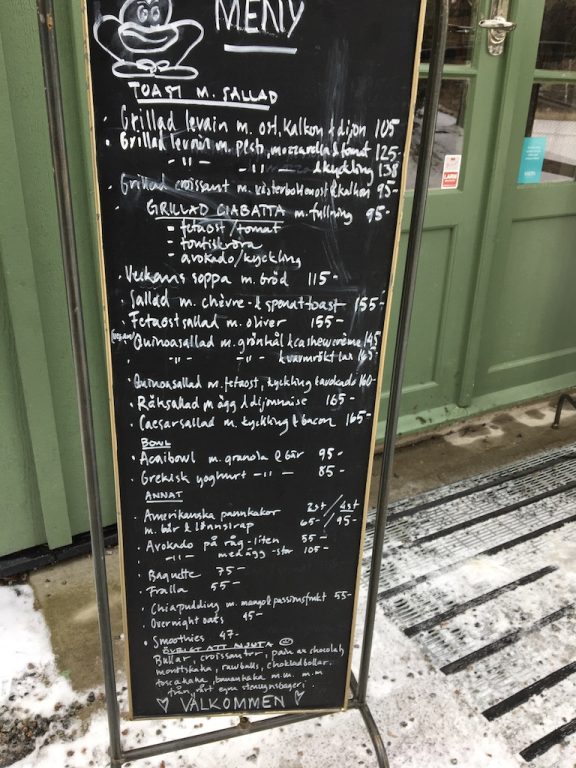 MENY
TOAST M. SALLAD
· Grillad levain m. ost, kalkon & dijon 105
· Grillad levain m. pesto, mozzarella & tomat 125-
-"- -"- & kyckling 138
· Grillad croissant m. västerbottenost & kalkon 95-
· GRILLAD CIABATTA m. fyllning 95-
- fetaost/tomat
- tontiskröra
- avokado/kyckling
· Veckans soppa m. bröd 115-
· Sallad m. chèvre- & spenattoast 155-
· Fetaostsallad m. oliver 155-
(VEGAN) · Quinoasallad m. grönkål & cashewcrème 145
· -"- -"- & varmrökt lax 165-
· Quinoasallad m. fetaost, kyckling & avokado 160-
· Räksallad m ägg & dijonnaise 165-
· Caesarsallad m. kyckling & bacon 165-
BOWL
· Acaibowl m. granola & bär 95-
· Grekisk yoghurt -"- 85-
ANNAT
· Amerikanska pannkakor 2st / 4st
m. bär & lönnsirap 65- / 95-
· Avokado på råg - liten 55-
-"- med ägg - stor 105-
· Baguette 75-
· Fralla 55-
· Chiapudding m. mango & passionsfrukt 55-
· Overnight oats 45-
· Smoothies 47-
ÖVRIGT ATT NJUTA
Bullar, croissanter, pain au chocolat,
morotskaka, rawballs, chokladbollar,
toscakaka, banankaka m.m. m.m
från vårt egna stenugnsbageri.
♡ VÄLKOMMEN ♡